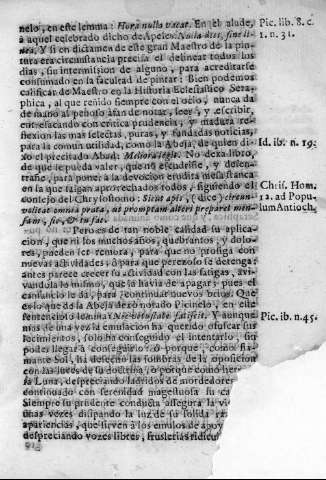 nelo, en este lemma: Hora nulla vacat. En el alude,
à aquel celebrado dicho de Apeles: Nulla dies, sine li-
nea. Y si en dictamen de este gran Maestro de la pin-
tura era circunstancia precisa el delinear todos los
dias, su intermission de alguno, para acreditarse
consumado en la facultad de pintar: Bien podemos
calificar de Maestro en la Historia Eclesiastico Sera-
phica, al que reñido siempre con el ocio, nunca dà
de mano al penoso afàn de notar, leer, y escribir,
entresacando con critica prudencia, y madura re-
flexion las mas selectas, puras, y fundadas noticias,
para la comun utilidad, como la Abeja, de quien di-
xo el precitado Abad: Meliora legit. No dexa libro,
de que pueda valer, que no escudriñe, y desen-
trañe, para poner à la devocion erudita mesa franca
en la que salgan aprovechados todos, siguiendo el
consejo del Chrysostomo: Sicut apis, (dice) circum-
volitat omnia prata, ut promptam alteri præparet men-
sam, sic, & tu fac.
Pero es de tan noble calidad su aplica-
cion, que ni los muchos años, quebrantos, y dolo-
res, pueden ser remora, para que no prosiga con
nuevas actividades; ò para que perezoso se detenga:
antes parece crecer su actividad con las fatigas, avi-
vandola lo mismo, que la havia de apagar; pues el
cansancio le dà, para continuar nuevos brios: Que
es lo que de la Abeja dexò notado Picinelo, en este
sentencioso lemma: Nec vetustate fatiscit. Y aunque
mas de una vez la emulacion ha querido ofuscar sus
lucimientos, solo ha conseguido el intentarlo, sin
poder llegar à conseguirlo: ò porque, como fla-
mante Sol, ha desecho las sombras de la oposicion
con las luces de su doctrina, ò porque como hermo-
sa Luna, despreciando ladridos de mordedores
continuado con serenidad magestuosa su
Siempre su prudente conducta assegura la vi-
unas vezes disipando la luz de su solida
apariencias, que sirven à los emulos de apoyo
despreciando vozes libres, fruslerias ridicu-
Pic. lib. 8. c.
1. n. 31.
Id. ib. n. 19.
Chris. Hom.
12. ad Popu-
lum Antioch,
Pic. ib. n. 45.